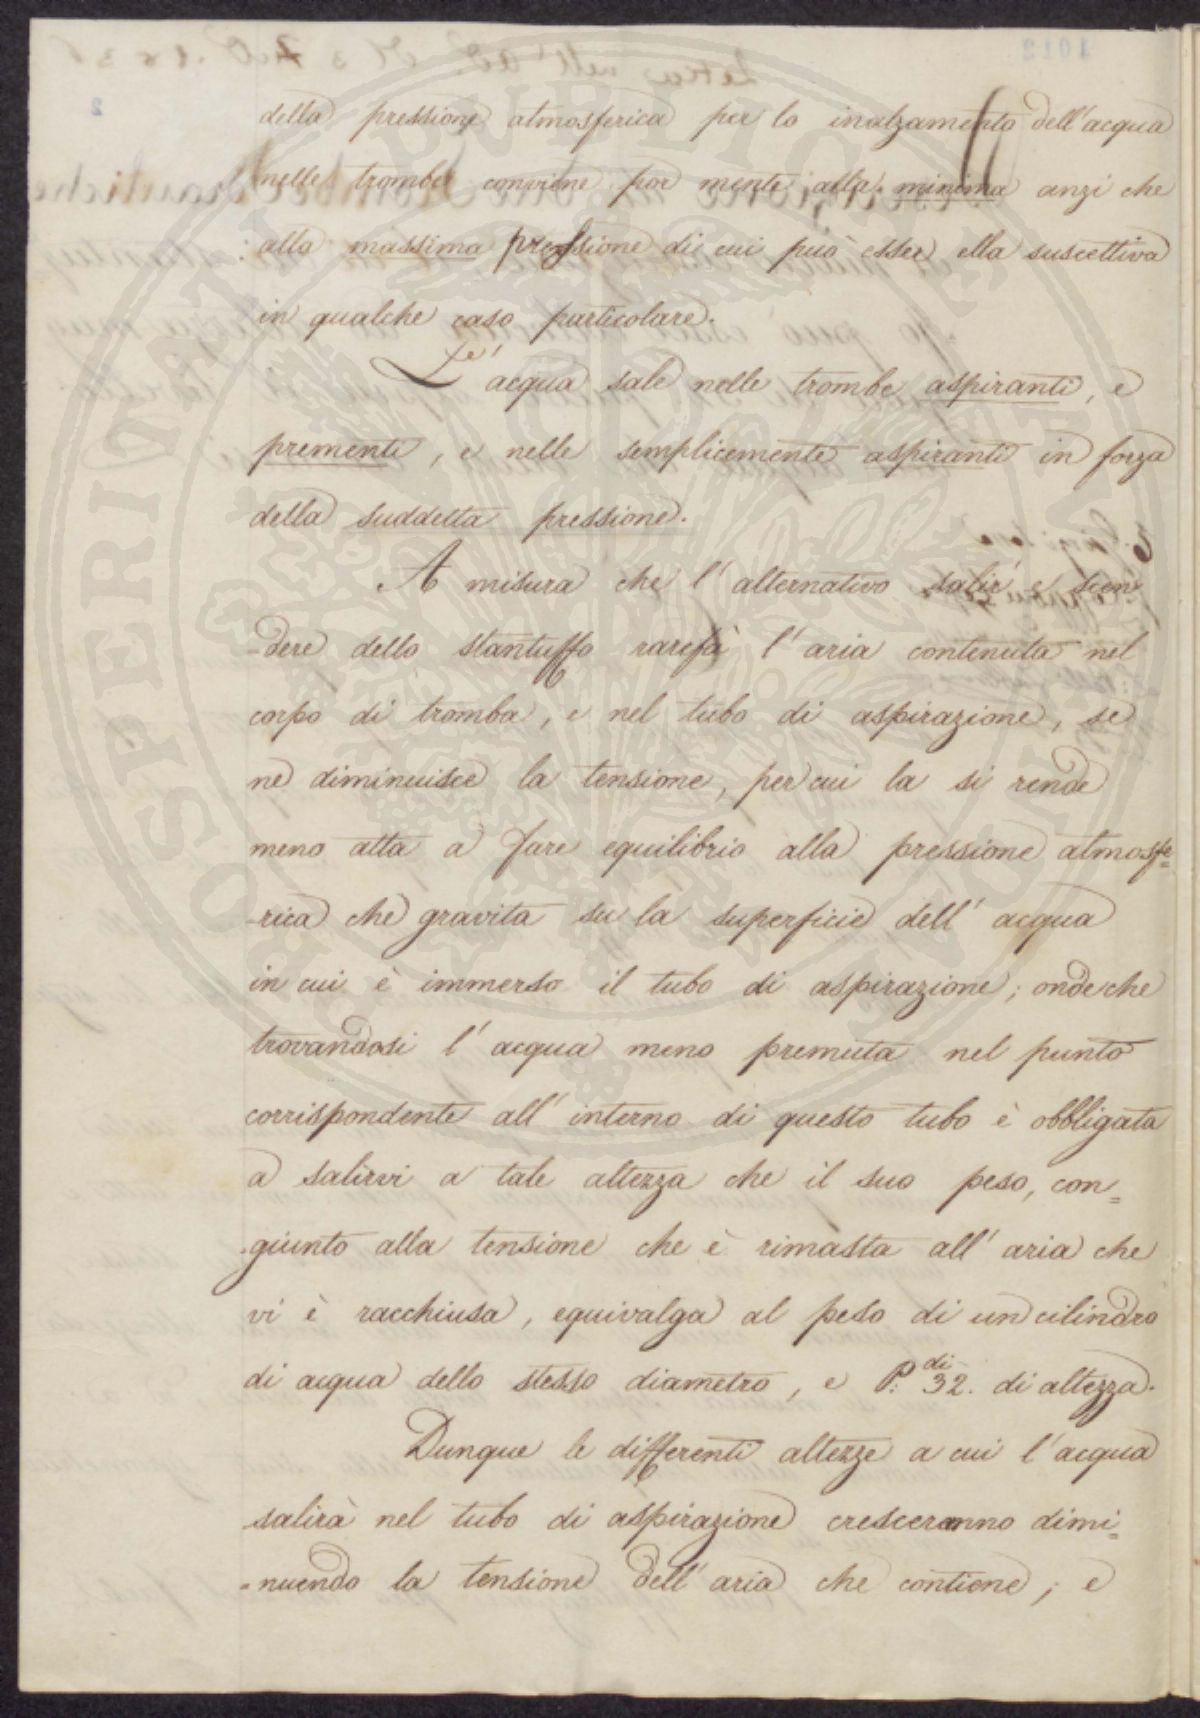 della pressione atmosferica per lo inalzamento dell'acqua
nelle trombe conviene por mente alla minima anzi che
alla massima pressione di cui può esser ella suscettiva
in qualche caso particolare.
L'acqua sale nelle trombe aspiranti, e
prementi, e nelle semplicemente aspiranti in forza
della suddetta pressione.
A misura che l'alternativo salir e scen
-dere dello stantuffo rarefà l'aria contenuta nel
corpo di tromba, e nel tubo di aspirazione, se
ne diminuisce la tensione, per cui la si rende
meno atta a fare equilibrio alla pressione atmosfe=
-rica che gravita su la superficie dell'acqua
in cui è immerso il tubo di aspirazione; onde che
trovandosi l'acqua meno premuta nel punto
corrispondente all'interno di questo tubo è obbligata
a salirvi a tale altezza che il suo peso, con=
-giunto alla tensione che è rimasta all'aria che
vi è racchiusa, equivalga al peso di un cilindro
di acqua dello stesso diametro, e P.di 32. di altezza.
Dunque le differenti altezze a cui l'acqua
salirà nel tubo di aspirazione cresceranno dimi=
=nuendo la tensione dell'aria che contiene; e
PROSPERITATI PUBLICAE